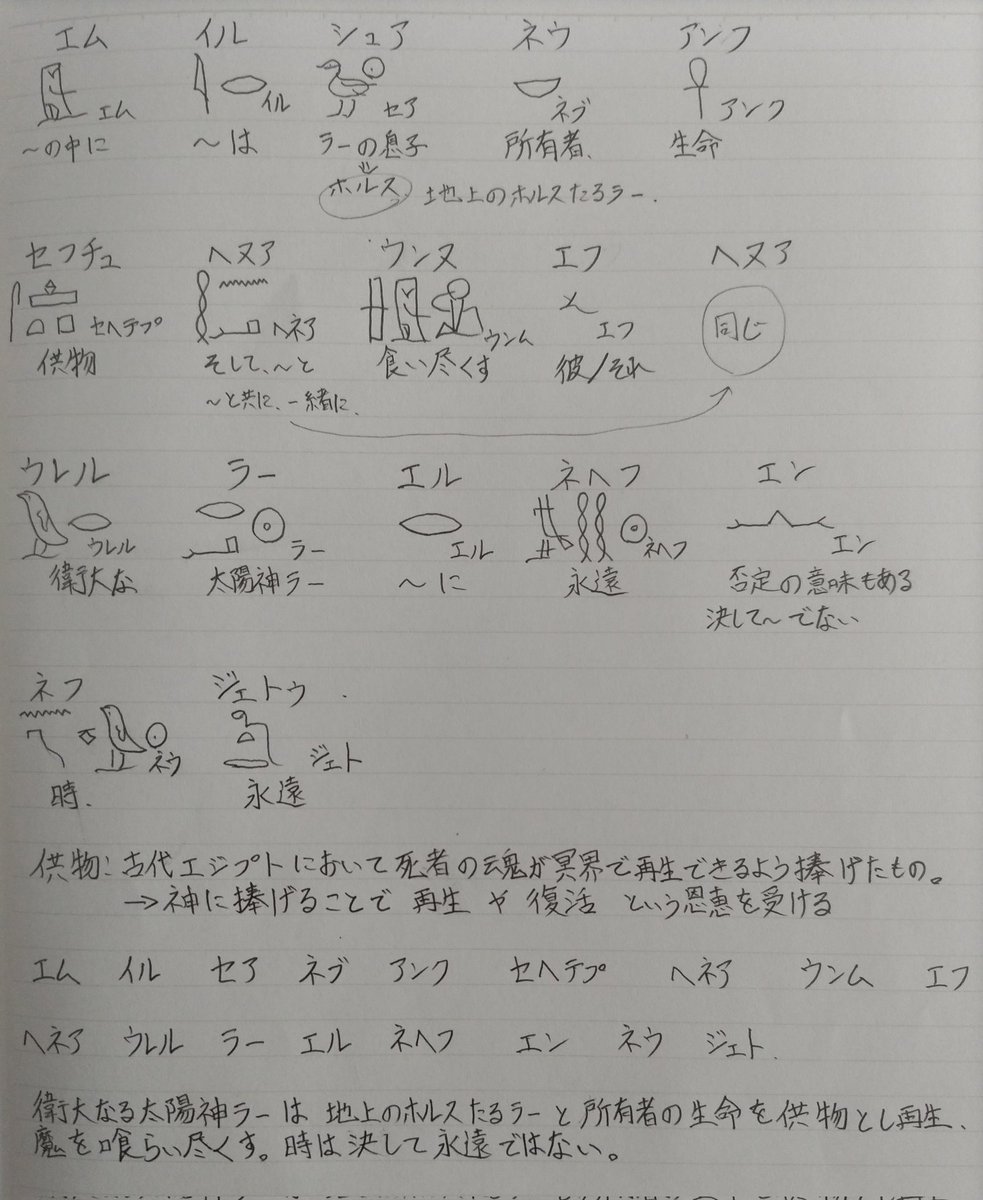 エム イル シュア ネウ アンフ
エム イル セア ネブ アンク
～の中に ～は ラーの息子 所有者、 生命
ホルス 地上のホルスたるラー.
セフチュ ヘヌア ウンヌ エフ ヘヌア
セヘテプ ヘネア ウンム エフ 同じ
供物 そして、～と 食い尽くす 彼/それ
～と共に、一緒に、
ウレル ラー エル ネヘフ エン
ウレル ラー エル ネヘフ エン
偉大な 太陽神ラー ～に 永遠 否定の意味もある
決して～でない
ネフ ジェトゥ.
ネウ ジェト
時. 永遠
供物:古代エジプトにおいて死者の魂が冥界で再生できるよう捧げたもの。
→神に捧げることで 再生 や 復活 という恩恵を受ける
エム イル セア ネブ アンク セヘテプ ヘネア ウンム エフ
ヘネア ウレル ラー エル ネヘフ エン ネウ ジェト.
偉大なる太陽神ラーは 地上のホルスたるラーと所有者の生命を供物とし再生、
魔を喰らい尽くす。時は決して永遠ではない。